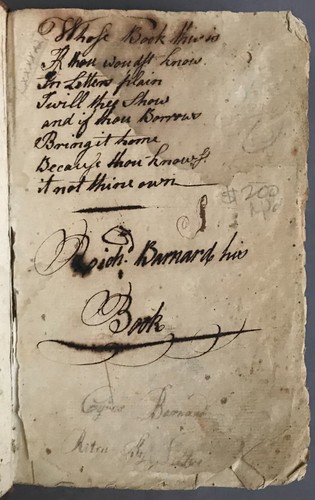 Whose Book this is
If thou woudst know
In Letters plain
I will thee Show
and if thou Borrow
Bring it home
Because thou knowst
it not thine own
$200
Richd. Barnard his
Book
Barnard